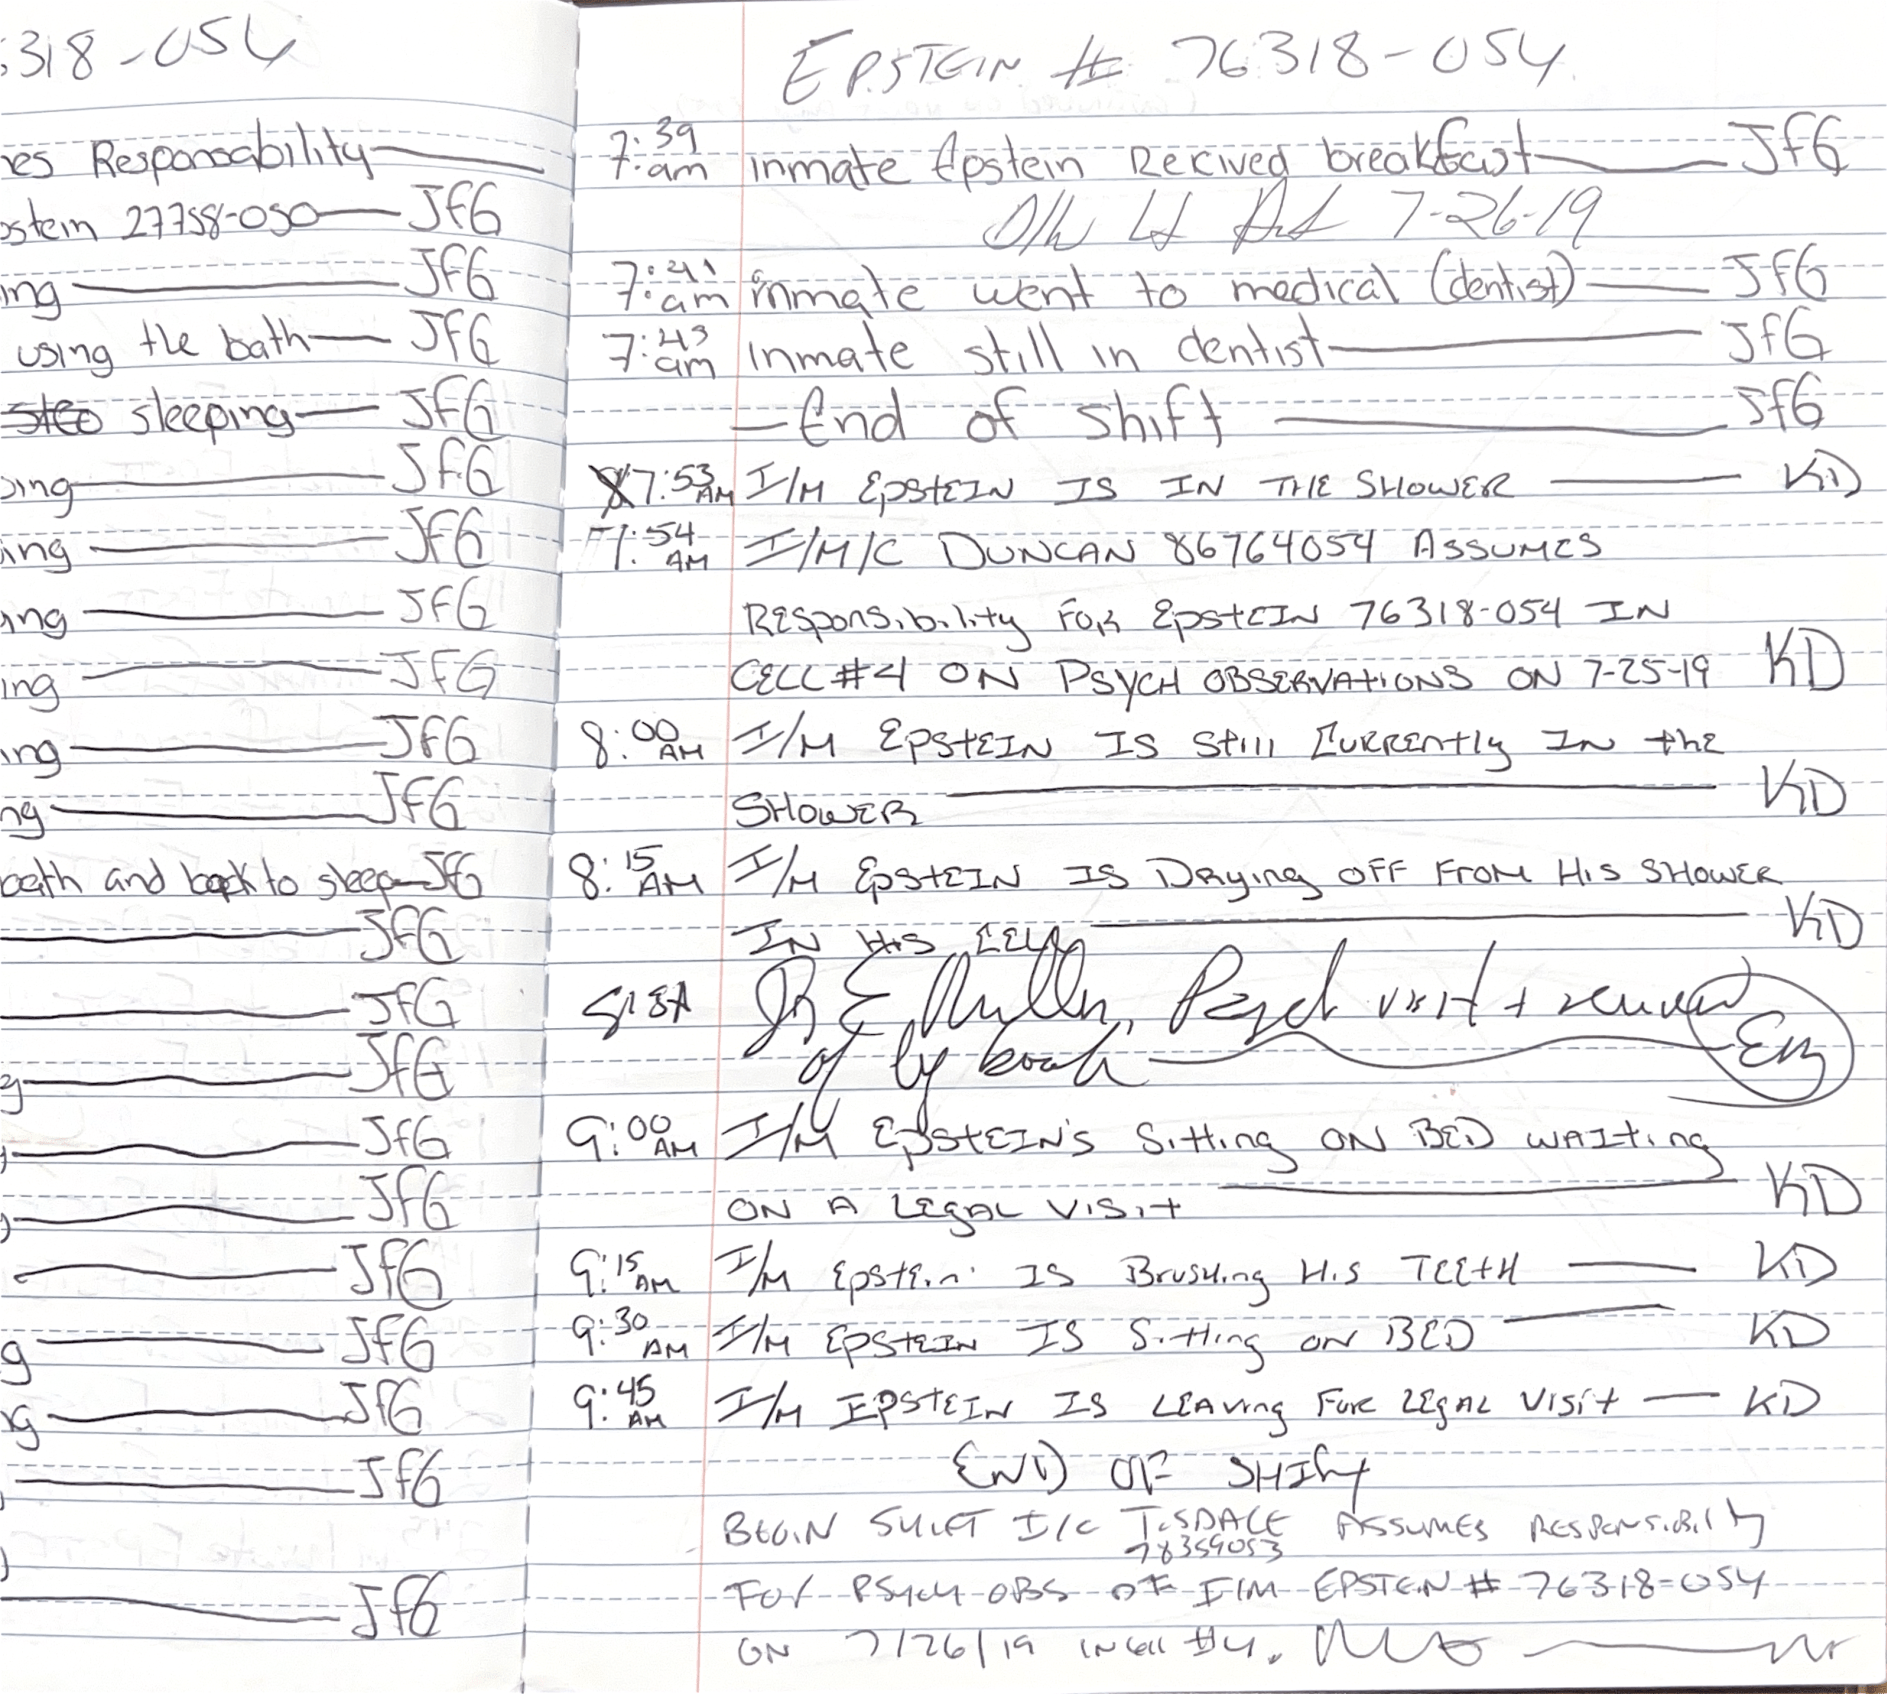 318-054
res Responsability
JfG
ostein 27758-050 JfG
ing JfG
using the bath JfG
sleeping JfG
ping JfG
ing JfG
ing JfG
ing JfG
ing JfG
ng JfG
bath and back to sleep JfG
JfG
JfG
g JfG
JfG
JfG
JfG
g JfG
ng JfG
JfG
JfG
EPSTEIN # 76318-054
7:39 am inmate Epstein Recived breakfast JfG
7-26-19
7:41 am inmate went to medical (dentist) JfG
7:43 am inmate still in dentist JfG
End of shift JfG
7:53 AM I/M EpstEIN IS IN THE SHOWER KD
7:54 AM I/M/C DUNCAN 86764054 ASSUMES
RESponsibility FOR EpstEIN 76318-054 IN
CELL #4 ON PSYCH OBSERVATIONS ON 7-25-19 KD
8:00 AM I/M EpstEIN IS Still CURRENtly IN thE
SHOWER KD
8:15 AM I/M EpstEIN IS DRying OFF FROM His SHOWER
IN His CELL KD
Psych visit + review
of log book EM
9:00 AM I/M EpstEIN'S Sitting ON BED WAIting
ON A LEgAL VISit KD
9:15 AM I/M EpstEin IS BRUSHing His TEEtH KD
9:30 AM I/M EpstEIN IS Sitting ON BED KD
9:45 AM I/M EPStEIN IS LEAVing FOR LEgAL VISit KD
END OF SHIft
BEGIN SHIFT I/C TISDALE ASSUMES RESPONSIBILITY
78359053
FOR PSYCH OBS OF I/M EPSTEIN # 76318-054
ON 7/26/19 IN CELL #4.